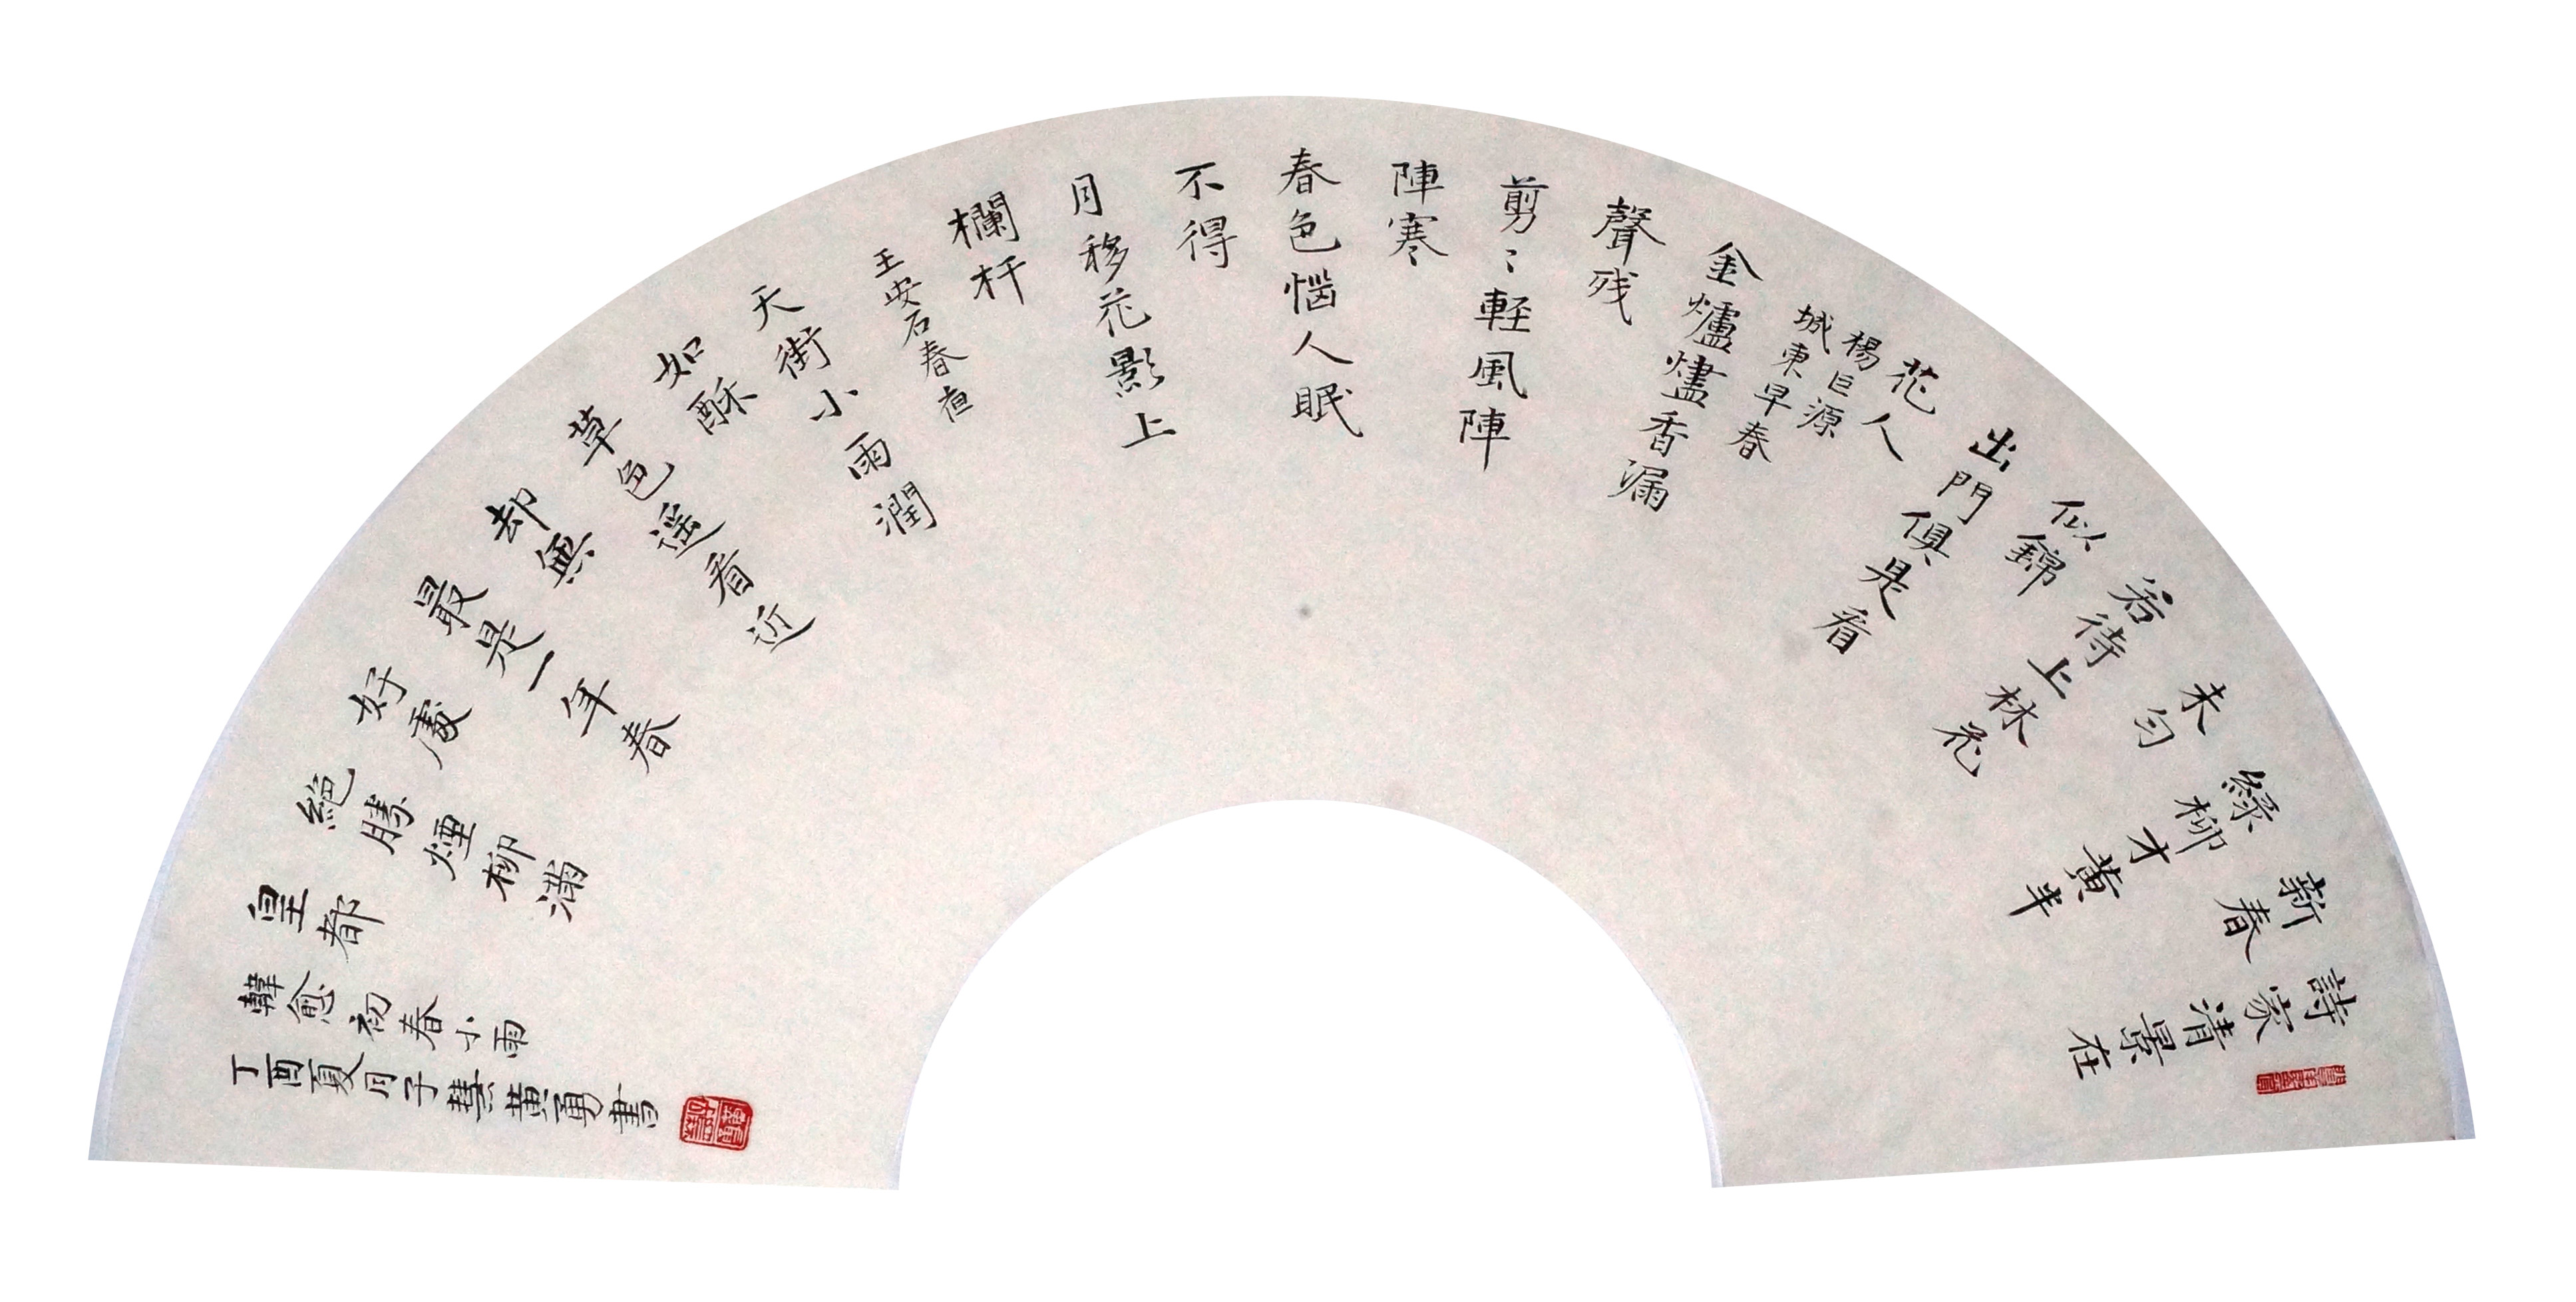 詩家清景在
新春
緑柳才黄半
未匀
若待上林花
似錦
出門俱是看
花人
楊巨源
城東早春
金爐燼香漏
聲残
剪〻輕風陣
陣寒
春色惱人眠
不得
月移花影上
欄杆
王安石春夜
天街小雨潤
如酥
草色遥看近
却無
最是一年春
好處
絕勝煙柳滿
皇都
韓愈初春小雨
丁酉夏月子慧黄勇書